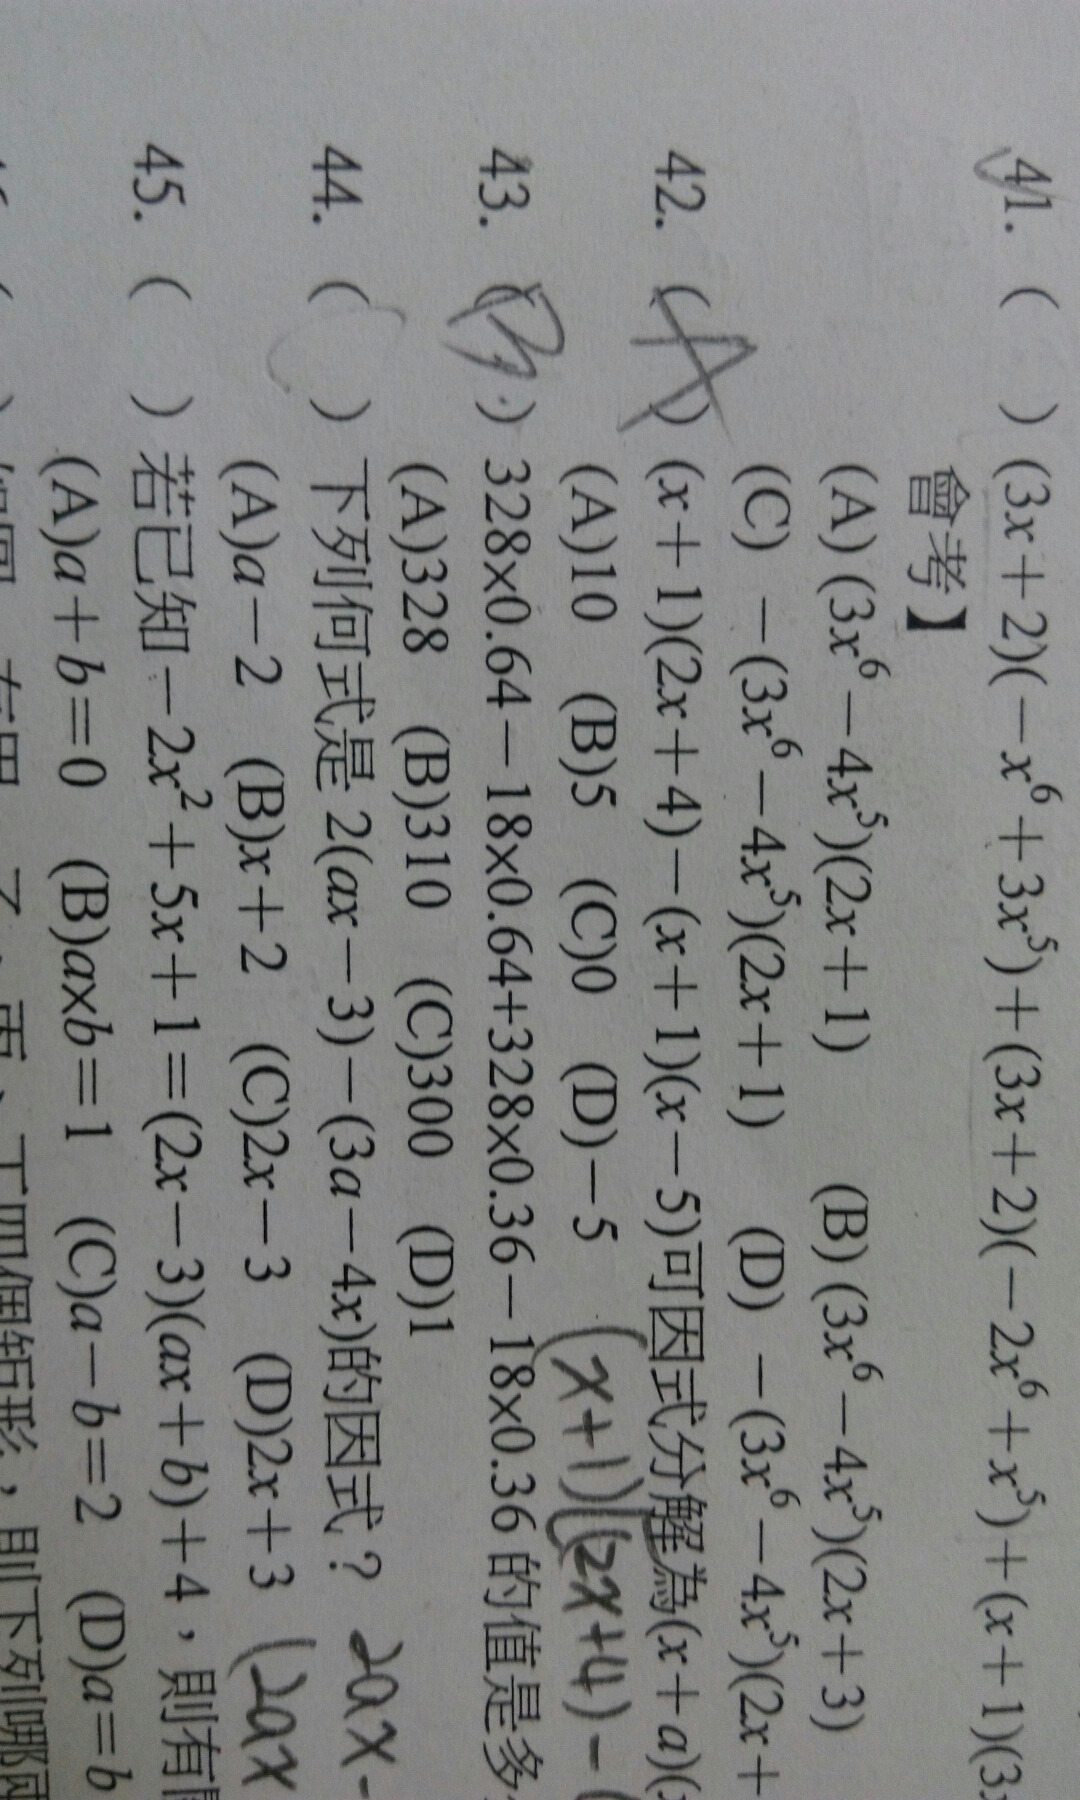 41. (　) (3x＋2)(－x⁶＋3x⁵)＋(3x＋2)(－2x⁶＋x⁵)＋(x＋1)(3x
會考】
(A) (3x⁶－4x⁵)(2x＋1)　(B) (3x⁶－4x⁵)(2x＋3)
(C) －(3x⁶－4x⁵)(2x＋1)　(D) －(3x⁶－4x⁵)(2x＋
42. (A) (x＋1)(2x＋4)－(x＋1)(x－5)可因式分解為(x＋a)(
(A)10　(B)5　(C)0　(D)－5
(x+1)(2x+4)-(
43. (B) 328×0.64－18×0.64+328×0.36－18×0.36的值是多
(A)328　(B)310　(C)300　(D)1
44. (　) 下列何式是2(ax－3)－(3a－4x)的因式？ 2ax-
(A)a－2　(B)x＋2　(C)2x－3　(D)2x＋3 (2ax
45. (　) 若已知－2x²＋5x＋1＝(2x－3)(ax＋b)＋4，則有
(A)a＋b＝0　(B)a×b＝1　(C)a－b＝2　(D)a＝b